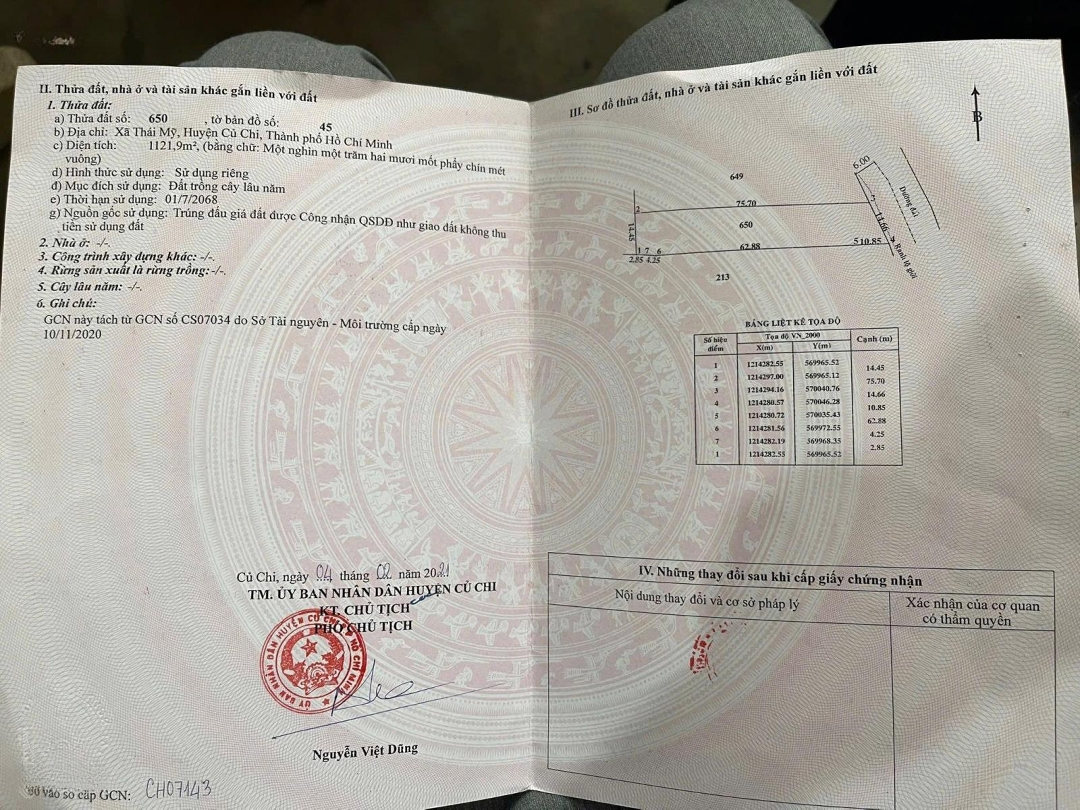 II. Thửa đất, nhà ở và tài sản khác gắn liền với đất
1. Thửa đất:
a) Thửa đất số: 650 , tờ bản đồ số: 45
b) Địa chỉ: Xã Thái Mỹ, Huyện Củ Chi, Thành phố Hồ Chí Minh
c) Diện tích: 1121,9m², (bằng chữ: Một nghìn một trăm hai mươi mốt phẩy chín mét
vuông)
d) Hình thức sử dụng: Sử dụng riêng
đ) Mục đích sử dụng: Đất trồng cây lâu năm
e) Thời hạn sử dụng: 01/7/2068
g) Nguồn gốc sử dụng: Trúng đấu giá đất được Công nhận QSDĐ như giao đất không thu
tiền sử dụng đất
2. Nhà ở: -/-.
3. Công trình xây dựng khác: -/-.
4. Rừng sản xuất là rừng trồng:-/-.
5. Cây lâu năm: -/-.
6. Ghi chú:
GCN này tách từ GCN số CS07034 do Sở Tài nguyên - Môi trường cấp ngày
10/11/2020
Củ Chi, ngày 04 tháng 02 năm 2021
TM. ỦY BAN NHÂN DÂN HUYỆN CỦ CHI
KT. CHỦ TỊCH
PHÓ CHỦ TỊCH
ỦY BAN NHÂN DÂN HUYỆN CỦ CHI
Nguyễn Việt Dũng
Số vào sổ cấp GCN: CH07143
III. Sơ đồ thửa đất, nhà ở và tài sản khác gắn liền với đất
B
649
6.00
Đường đất
2
75.70
3
14.66
14.45
650
4
Ranh lộ giới
1 7 6
62.88
5 10.85
2.85 4.25
213
BẢNG LIỆT KÊ TỌA ĐỘ
Số hiệu điểm
Tọa độ VN_2000
Cạnh (m)
X(m) Y(m)
1 1214282.55 569965.52
14.45
2 1214297.00 569965.12
75.70
3 1214294.16 570040.76
14.66
4 1214280.57 570046.28
10.85
5 1214280.72 570035.43
62.88
6 1214281.56 569972.55
4.25
7 1214282.19 569968.35
2.85
1 1214282.55 569965.52
IV. Những thay đổi sau khi cấp giấy chứng nhận
Nội dung thay đổi và cơ sở pháp lý
Xác nhận của cơ quan
có thẩm quyền